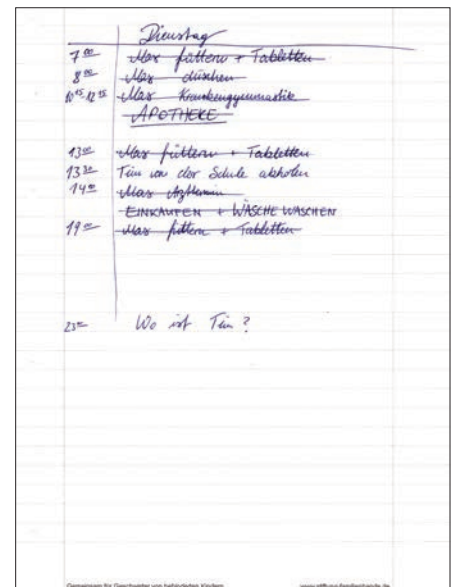 Dienstag
7 00 Max füttern + Tabletten
8 00 Max duschen
10 45-12 15 Max Krankengymnastik
APOTHEKE
13 00 Max füttern + Tabletten
13 30 Tim von der Schule abholen
14 00 Max Arzttermin
EINKAUFEN + WÄSCHE WASCHEN
19 00 Max füttern + Tabletten
23 00 Wo ist Tim?
Gemeinsam für Geschwister von behinderten Kindern. www.stiftung-familienbande.de